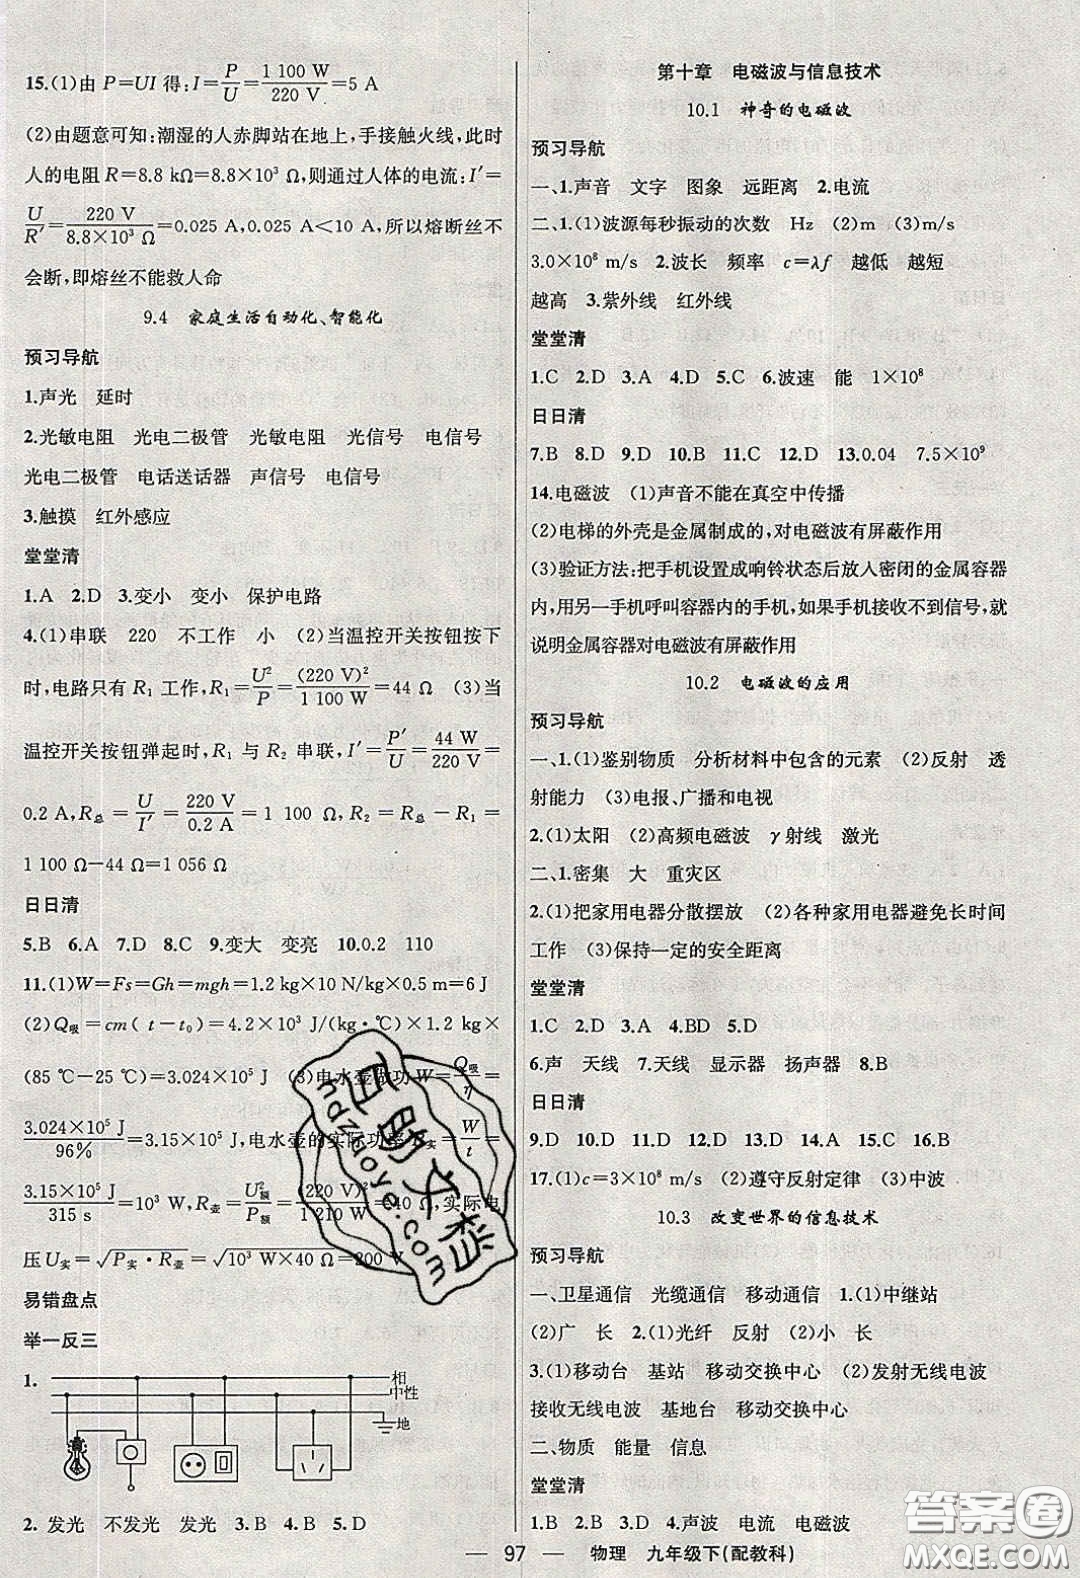 15.(1)由 P=UI 得:I=P/U=1 100 W/220 V=5 A
(2)由题意可知:潮湿的人赤脚站在地上,手接触火线,此时
人的电阻 R=8.8 kΩ=8.8×10³ Ω,则通过人体的电流:I′=
U/R′=220 V/8.8×10³ Ω=0.025 A,0.025 A<10 A,所以熔断丝不
会断,即熔丝不能救人命
9.4 家庭生活自动化、智能化
预习导航
1.声光 延时
2.光敏电阻 光电二极管 光敏电阻 光信号 电信号
光电二极管 电话送话器 声信号 电信号
3.触摸 红外感应
堂堂清
1.A 2.D 3.变小 变小 保护电路
4.(1)串联 220 不工作 小 (2)当温控开关按钮按下
时,电路只有 R₁ 工作,R₁=U²/P=(220 V)²/1 100 W=44 Ω (3)当
温控开关按钮弹起时,R₁ 与 R₂ 串联,I′=P′/U=44 W/220 V=
0.2 A,R总=U/I′=220 V/0.2 A=1 100 Ω,R₂=R总-R₁=
1 100 Ω-44 Ω=1 056 Ω
日日清
5.B 6.A 7.D 8.C 9.变大 变亮 10.0.2 110
11.(1)W=Fs=Gh=mgh=1.2 kg×10 N/kg×0.5 m=6 J
(2)Q吸=cm(t-t₀)=4.2×10³ J/(kg·℃)×1.2 kg×
(85 ℃-25 ℃)=3.024×10⁵ J (3)电水壶做功 W=Q吸/η=
3.024×10⁵ J/96%=3.15×10⁵ J,电水壶的实际功率 P实=W/t=
3.15×10⁵ J/315 s=10³ W,R壶=U²额/P额=(220 V)²/1 210 W=40 Ω,实际电
压 U实=√P实·R壶=√10³ W×40 Ω=200 V
易错盘点
举一反三
1.
相
中性
地
2. 发光 不发光 发光 3.B 4.B 5.D
第十章 电磁波与信息技术
10.1 神奇的电磁波
预习导航
一、1.声音 文字 图象 远距离 2.电流
二、1.(1)波源每秒振动的次数 Hz (2)m (3)m/s
3.0×10⁸ m/s 2.波长 频率 c=λf 越低 越短
越高 3.紫外线 红外线
堂堂清
1.C 2.D 3.A 4.D 5.C 6.波速 能 1×10⁸
日日清
7.B 8.D 9.D 10.B 11.C 12.D 13.0.04 7.5×10⁹
14.电磁波 (1)声音不能在真空中传播
(2)电梯的外壳是金属制成的,对电磁波有屏蔽作用
(3)验证方法:把手机设置成响铃状态后放入密闭的金属容器
内,用另一手机呼叫容器内的手机,如果手机接收不到信号,就
说明金属容器对电磁波有屏蔽作用
10.2 电磁波的应用
预习导航
一、1.(1)鉴别物质 分析材料中包含的元素 (2)反射 透
射能力 (3)电报、广播和电视
2.(1)太阳 (2)高频电磁波 γ射线 激光
二、1.密集 大 重灾区
2.(1)把家用电器分散摆放 (2)各种家用电器避免长时间
工作 (3)保持一定的安全距离
堂堂清
1.C 2.D 3.A 4.BD 5.D
6.声 天线 7.天线 显示器 扬声器 8.B
日日清
9.D 10.D 11.D 12.D 13.D 14.A 15.C 16.B
17.(1)c=3×10⁸ m/s (2)遵守反射定律 (3)中波
10.3 改变世界的信息技术
预习导航
一、卫星通信 光缆通信 移动通信 1.(1)中继站
(2)广 长 2.(1)光纤 反射 (2)小 长
3.(1)移动台 基站 移动交换中心 (2)发射无线电波
接收无线电波 基地台 移动交换中心
二、物质 能量 信息
堂堂清
1.B 2.B 3.D 4.声波 电流 电磁波
— 97 — 物理 九年级下(配教科)
答案圈
MXQE.COM
hdzuoye.com